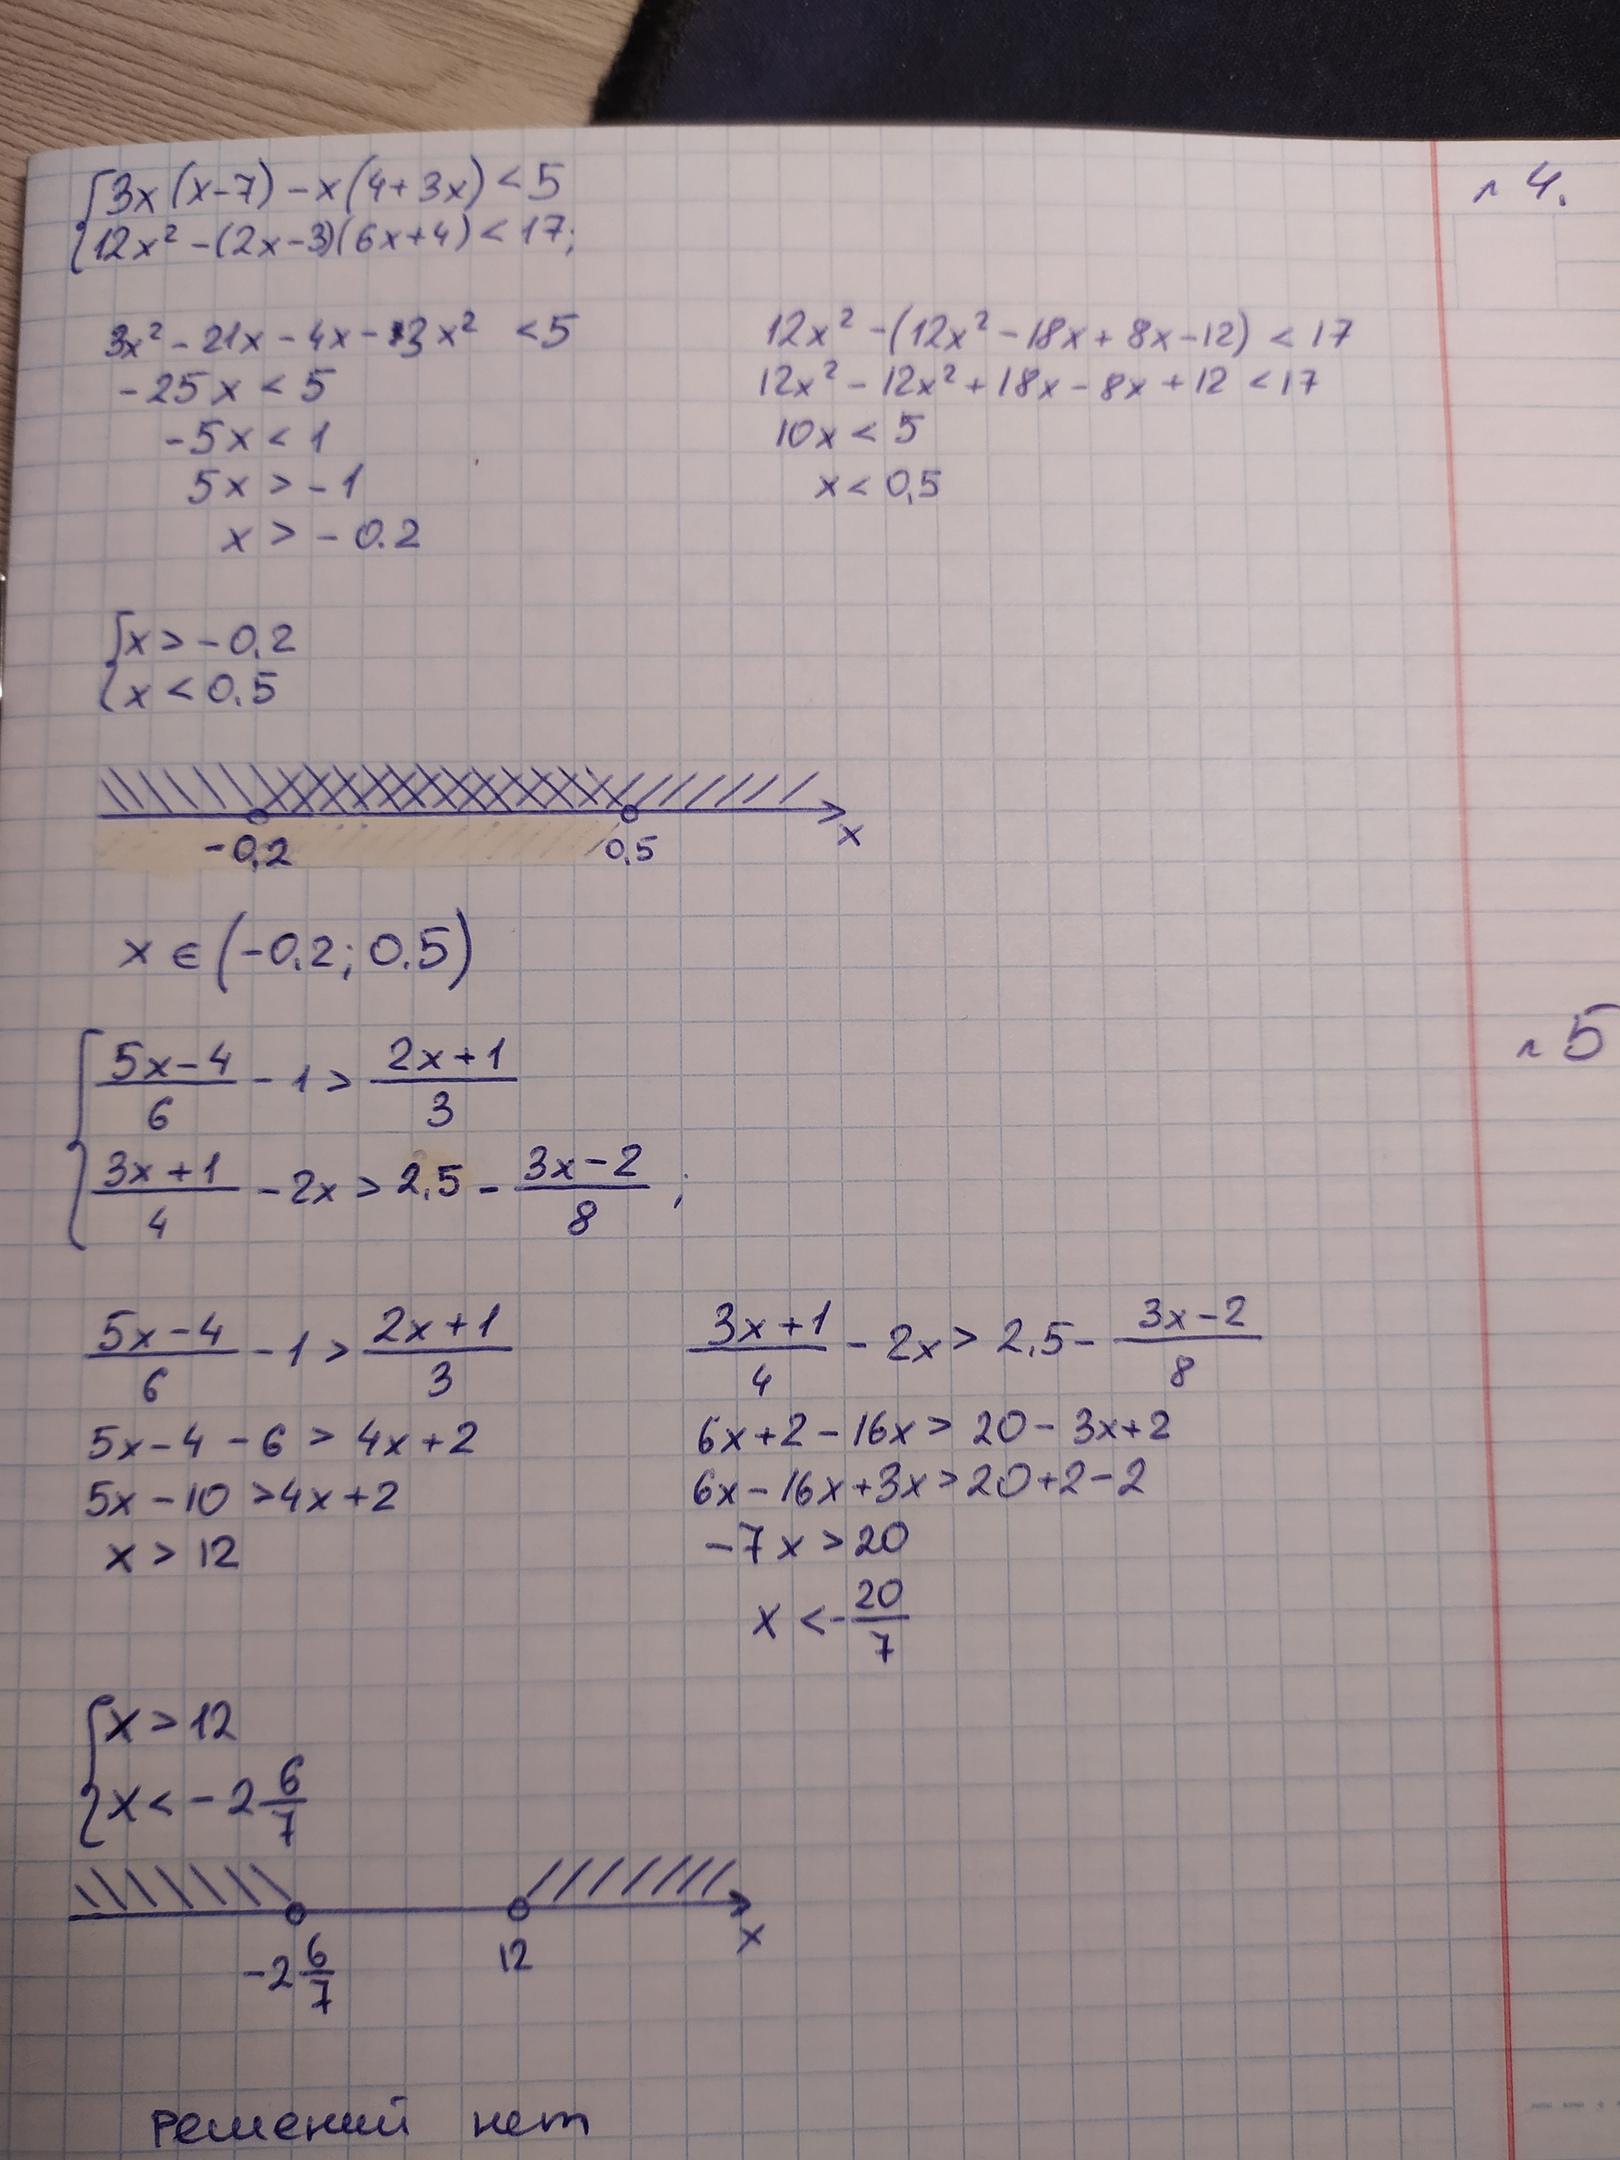 {3x(x-7)-x(4+3x)<5
{12x²-(2x-3)(6x+4)<17;
л 4.
3x²-21x-4x-3x² <5
-25x<5
-5x<1
5x>-1
x>-0.2
12x²-(12x²-18x+8x-12)<17
12x²-12x²+18x-8x+12<17
10x<5
x<0,5
{x>-0,2
{x<0.5
-0,2 0,5 x
x∈(-0.2;0.5)
л 5
{(5x-4)/6 - 1 > (2x+1)/3
{(3x+1)/4 - 2x > 2,5 - (3x-2)/8 ;
(5x-4)/6 - 1 > (2x+1)/3
5x-4-6>4x+2
5x-10>4x+2
x>12
(3x+1)/4 - 2x > 2,5 - (3x-2)/8
6x+2-16x>20-3x+2
6x-16x+3x>20+2-2
-7x>20
x<-20/7
{x>12
{x<-2 6/7
-2 6/7 12 x
Решений нет